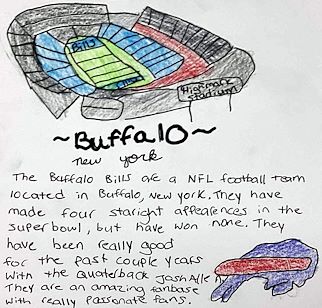 Bills
Highmark
stadium
~Buffalo~
new york
The Buffalo Bills are a NFL football team
located in Buffalo, New york. They have
made four staright affearences in the
super bowl, but have won none. They
have been really good
for the past couple years
with the quaterback Josh Allen
They are an amazing fanbase
with really passionate fans.